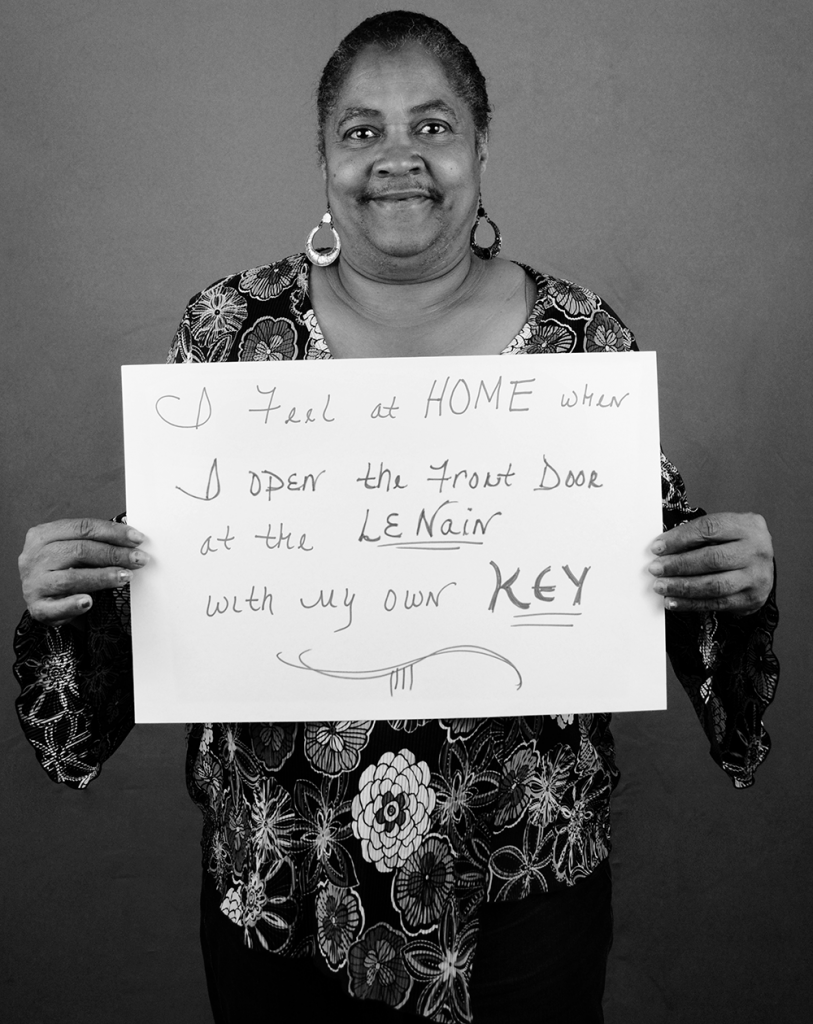 I Feel at HOME when
I OPEN the Front Door
at the LENain
with my own KEY